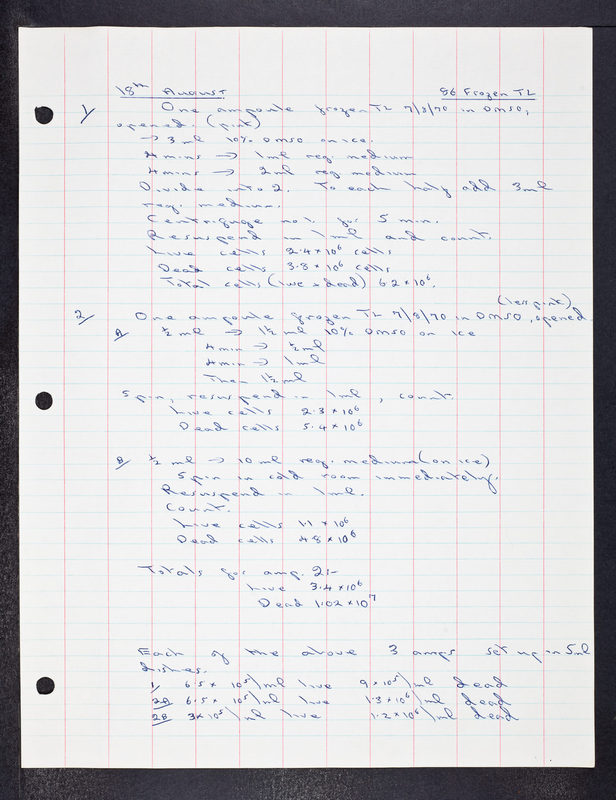 18th August 86 Frozen TL
1/ One ampoule frozen TL 7/8/70 in DMSO,
opened. (pink)
→ 3ml 10% DMSO on ice.
4 mins → 1ml reg. medium
4 mins → 2ml reg medium
Divide into 2. To each half add 3ml
reg. medium.
Centrifuge no 1. for 5 min.
Resuspend in 1ml and count.
Live cells 2.4 × 10⁶ cells
Dead cells 3.8 × 10⁶ cells
Total cells (live + dead) 6.2 × 10⁶.
(less pink)
2/ One ampoule frozen TL 7/8/70 in DMSO, opened.
A ½ ml → 1½ ml 10% DMSO on ice
4 min → ½ ml
4 min → 1ml
Then 1½ ml
Spin, resuspend in 1ml, count.
Live cells 2.3 × 10⁶
Dead cells 5.4 × 10⁶
B ½ ml → 10 ml reg. medium (on ice)
Spin in cold room immediately.
Resuspend in 1ml.
Count.
Live cells 1.1 × 10⁶
Dead cells 4.8 × 10⁶
Totals for amp. 2:-
Live 3.4 × 10⁶
Dead 1.02 × 10⁷
Each of the above 3 amps set up in 5ml
dishes.
1 6.5 × 10⁵/ml live 9 × 10⁵/ml dead
2A 6.5 × 10⁵/ml live 1.3 × 10⁶/ml dead
2B 3 × 10⁵/ml live 1.2 × 10⁶/ml dead